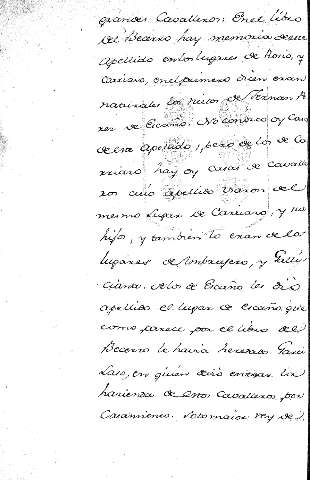 grandes Cavalleros. En el libro
del Becerro hay memoria de este
Apellido en los lugares de Hoño, y
Carriazo, en el primero dicen eran
naturales los nietos de Fernan
rez de Escaño. No conozco oy Casa
de este Apellido, pero de los de Ca
rriazo hay oy casas de cavalle
ros cuio apellido usaron del
mesmo lugar de Carriazo, y sus
hijos, y tambien lo eran de los
lugares de Ambrojero, y
A los de Escaño les dió
apellido el lugar de escaño, que
como parece por el libro del
Becerro le havia heredado Garci
Laso, en quien devió entrar la
hacienda de estos Cavalleros por
Casamiento. Sotomaior Rey de